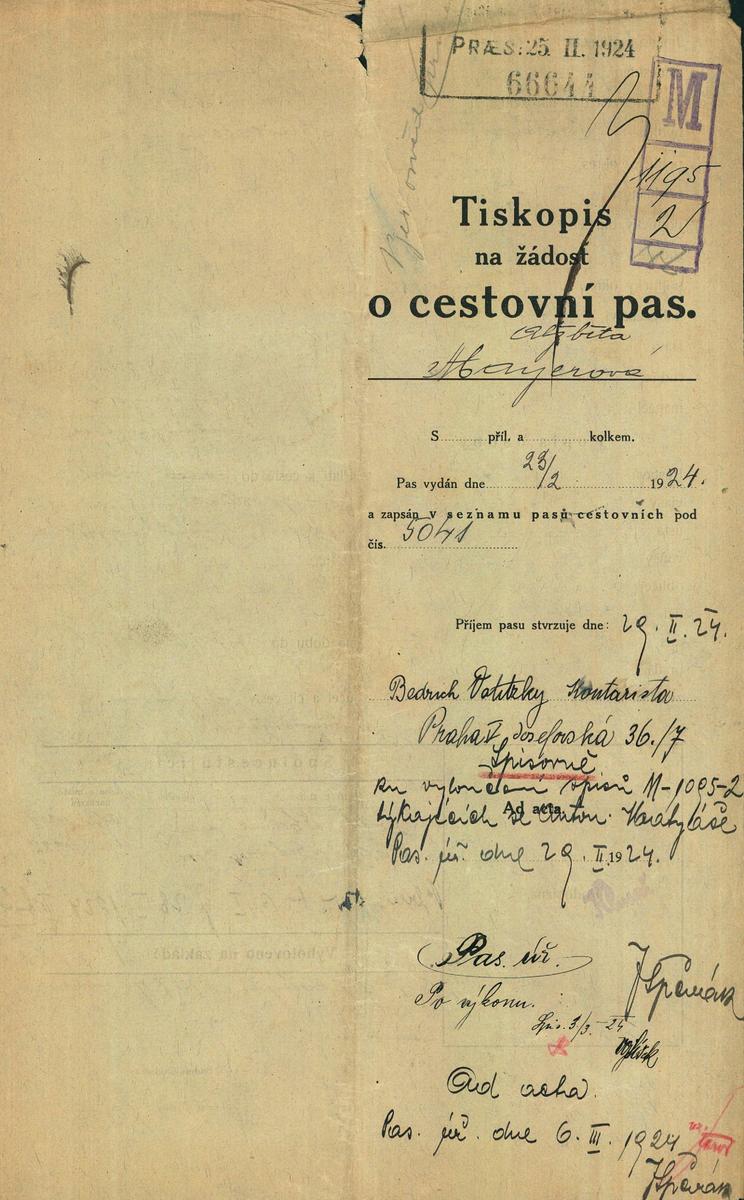 PRÆS: 25. II. 1924
66644
M
1195
2
Tiskopis
na žádost
o cestovní pas.
Alžběta
Mayerová
S........ příl. a ........ kolkem.
Pas vydán dne 23/2 1924.
a zapsán v seznamu pasů cestovních pod
čís. 5041
Příjem pasu stvrzuje dne: 29. II. 24.
Bedrich
Praha V Josefovská 36./7
Spisovně
ku vyloučení spisů M-1095-2
týkajících se Anton.
Ad acta.
Pas. úř. dne 29. II. 1924.
Pas. úř.
Po výkonu.
3/3 24
Ad acta.
Pas. úř. dne 6. III. 1924